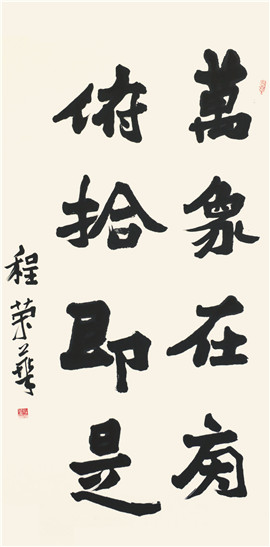 萬象在旁
俯拾即是
程荣華